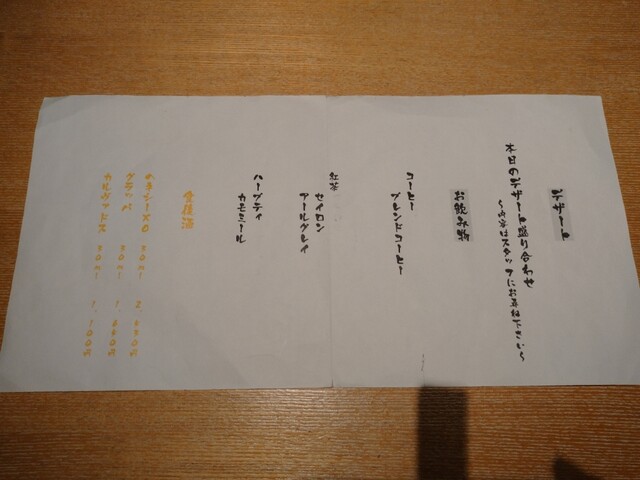 デザート
本日のデザート盛り合わせ
~内容はスタッフにお尋ね下さい~
お飲み物
コーヒー
ブレンドコーヒー
紅茶
セイロン
アールグレイ
ハーブティ
カモミール
食後酒
ヘネシーXO 30ml 2,
グラッパ 30ml 1,
カルヴァドス 30ml 1,100円